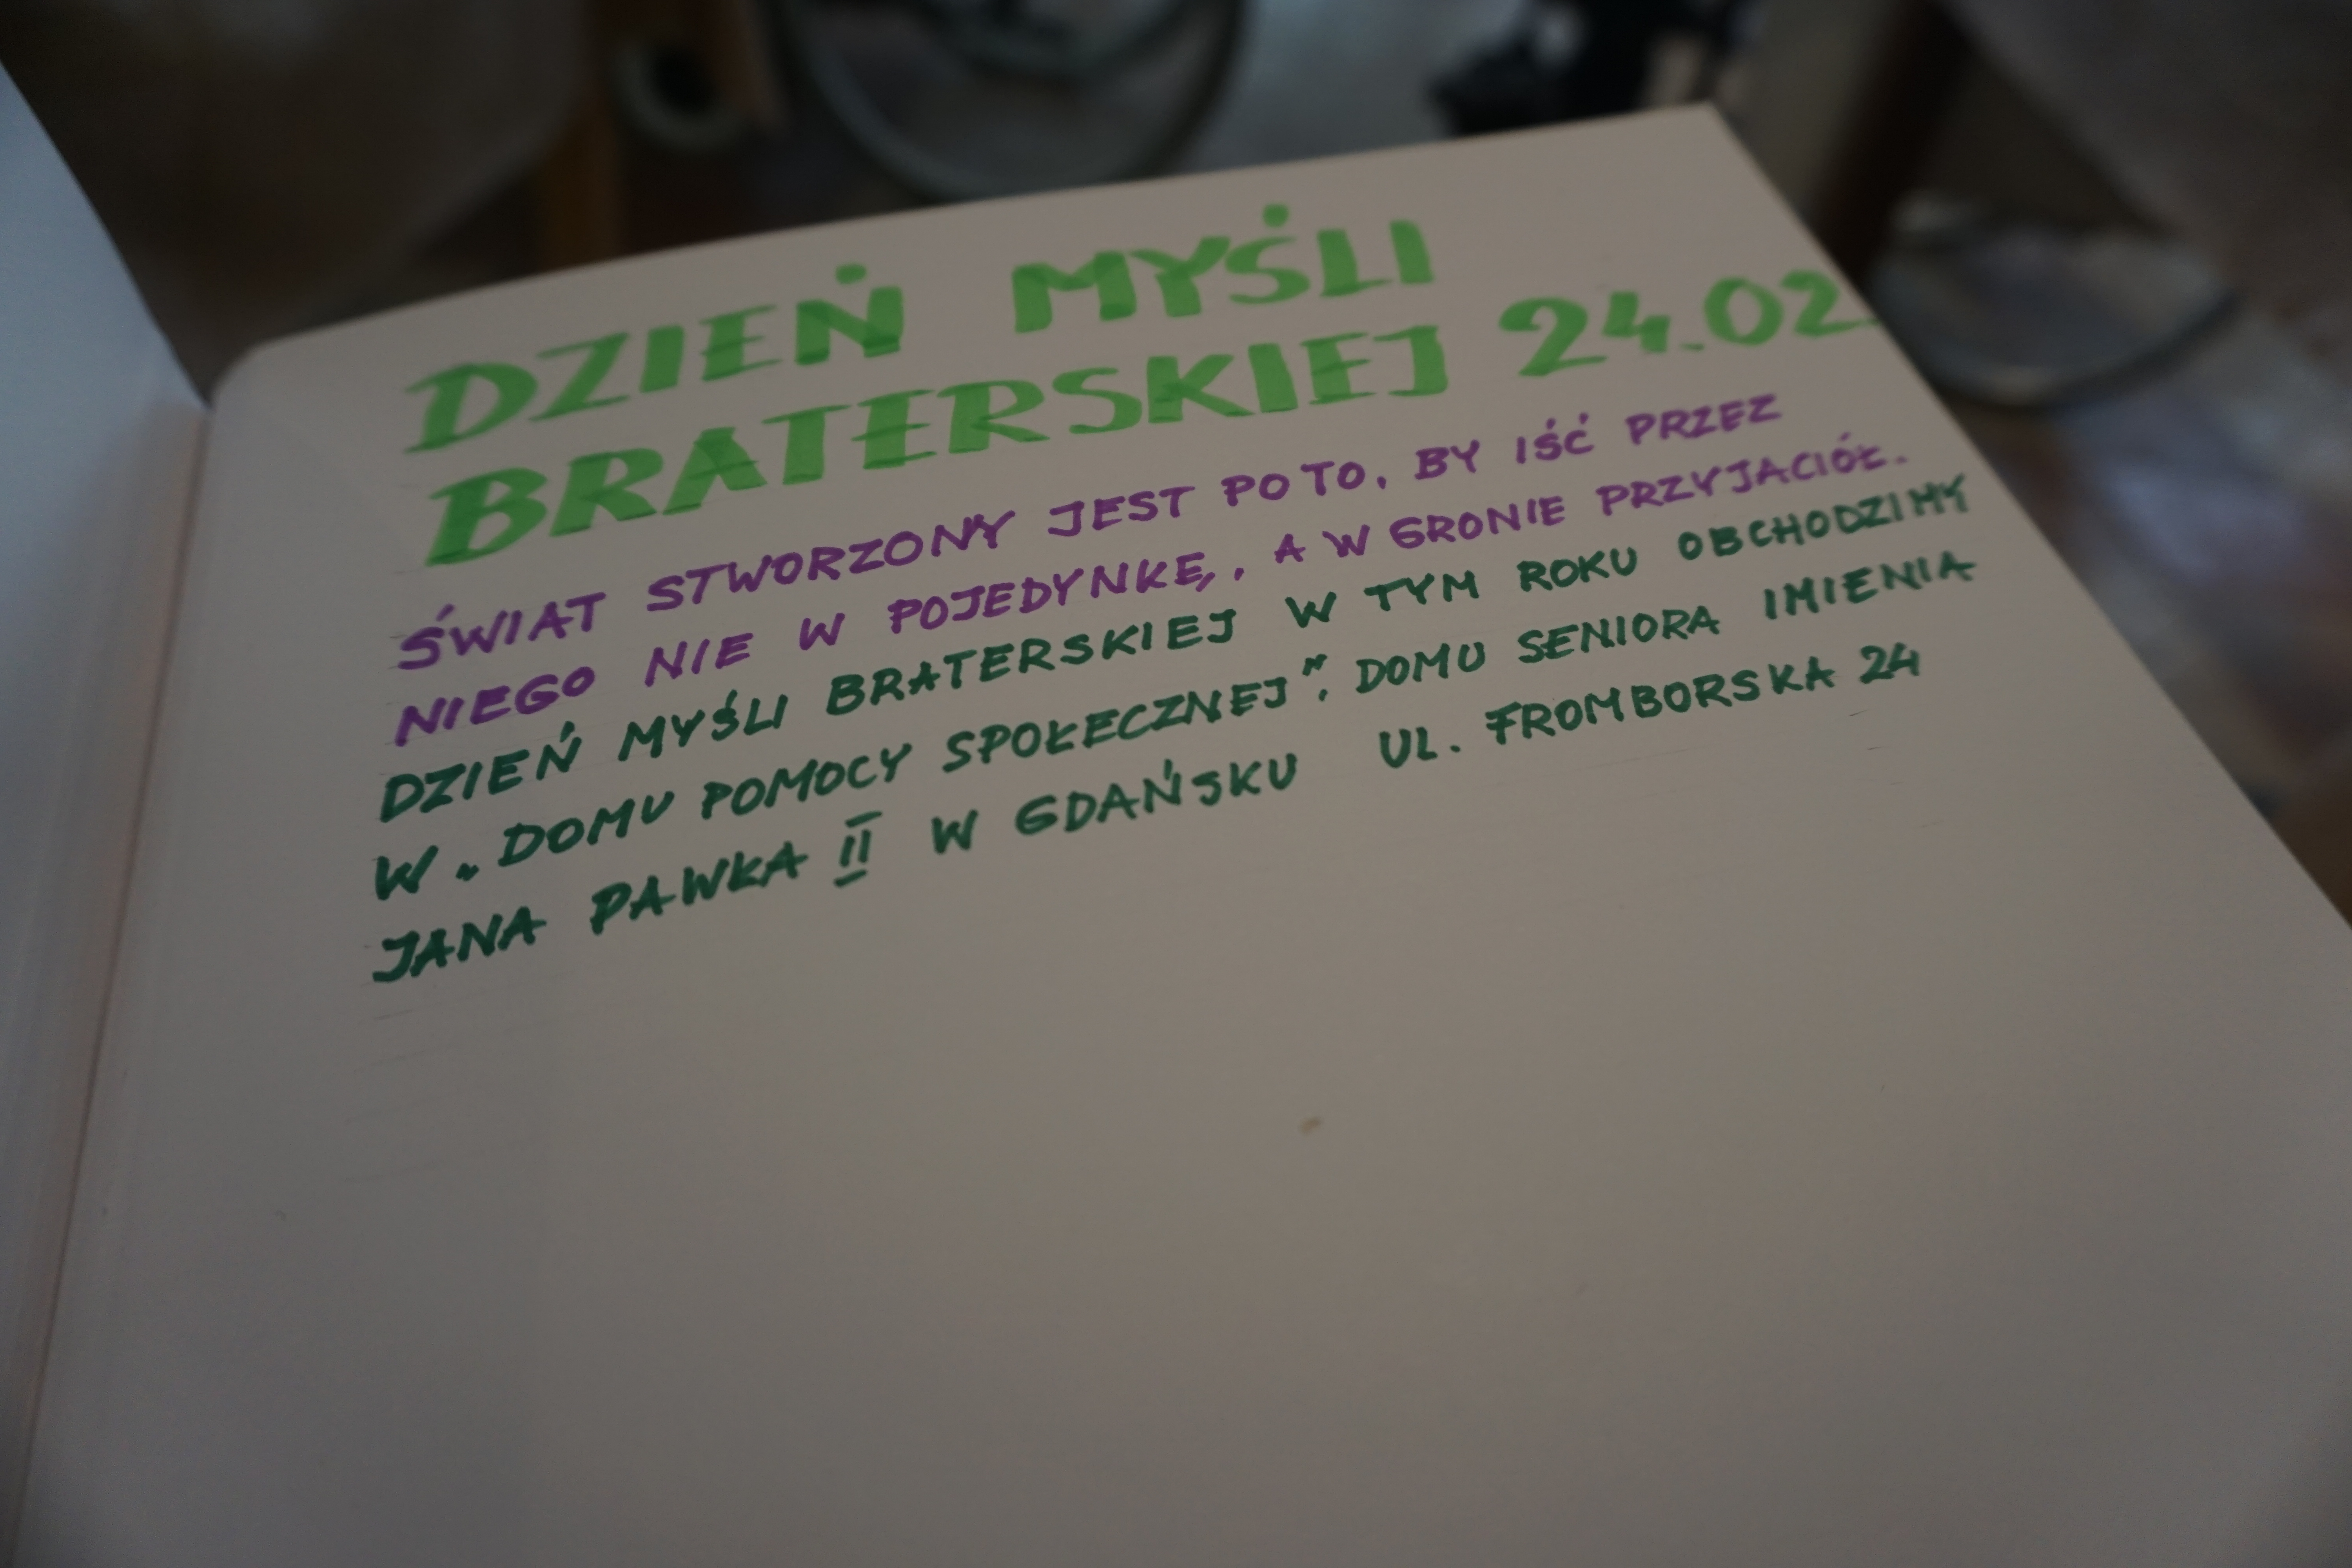 DZIEŃ MYŚLI
BRATERSKIEJ 24.02
ŚWIAT STWORZONY JEST PO TO, BY IŚĆ PRZEZ
NIEGO NIE W POJEDYNKĘ, A W GRONIE PRZYJACIÓŁ.
DZIEŃ MYŚLI BRATERSKIEJ W TYM ROKU OBCHODZIMY
W „DOMU POMOCY SPOŁECZNEJ", DOMU SENIORA IMIENIA
JANA PAWŁA II W GDAŃSKU UL. FROMBORSKA 24